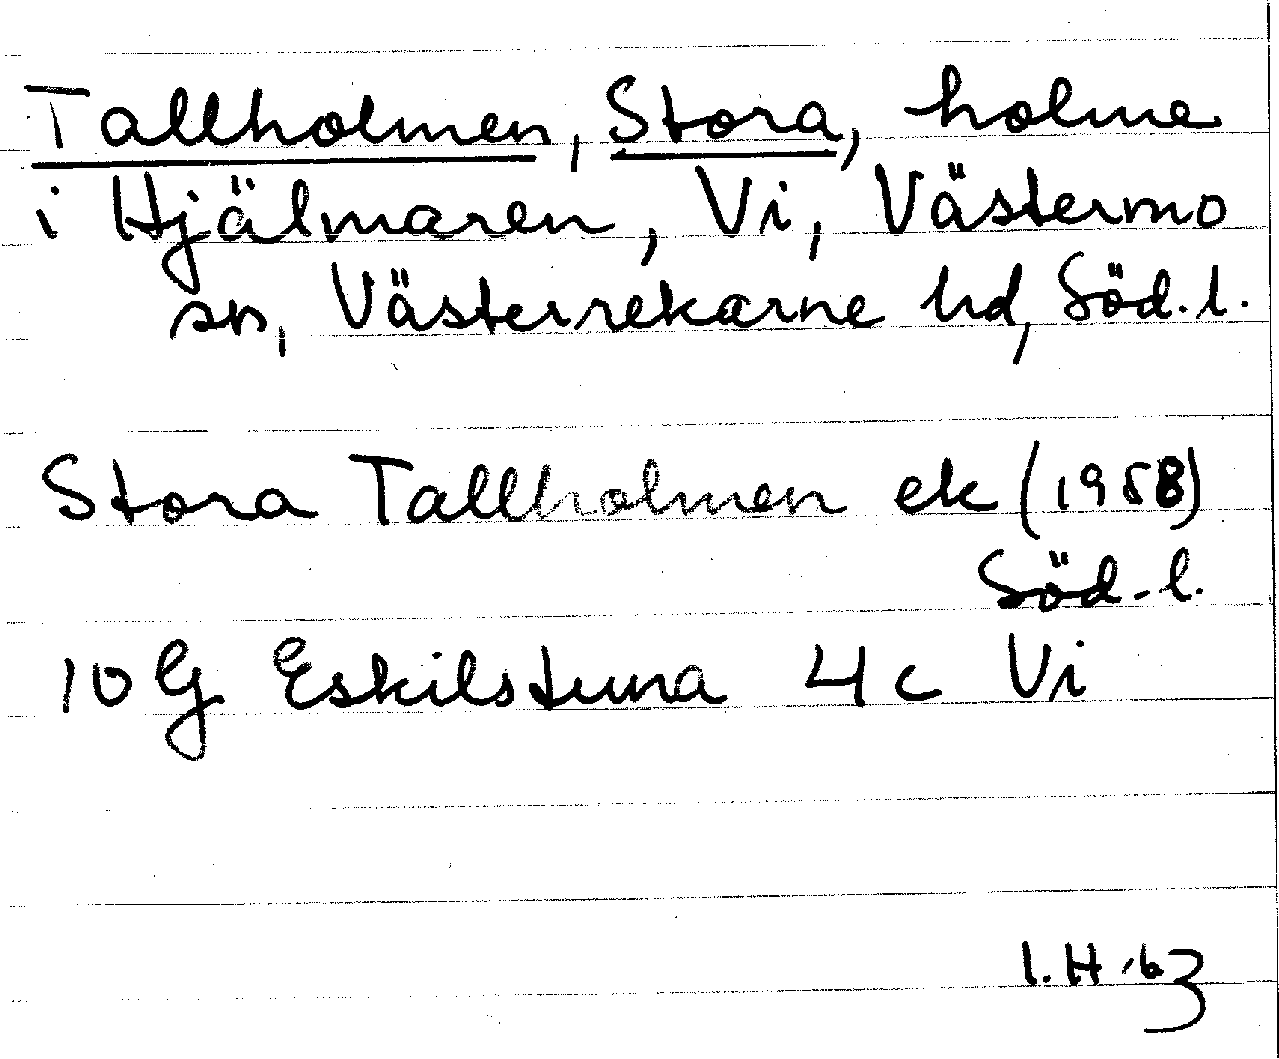 Tallholmen, Stora, holme
i Hjälmaren, Vi, Västermo
sn, Västerrekarne hd, Söd. l.
Stora Tallholmen ek (1958)
Söd. l.
10 G Eskilstuna 4 c Vi
I. H. 63